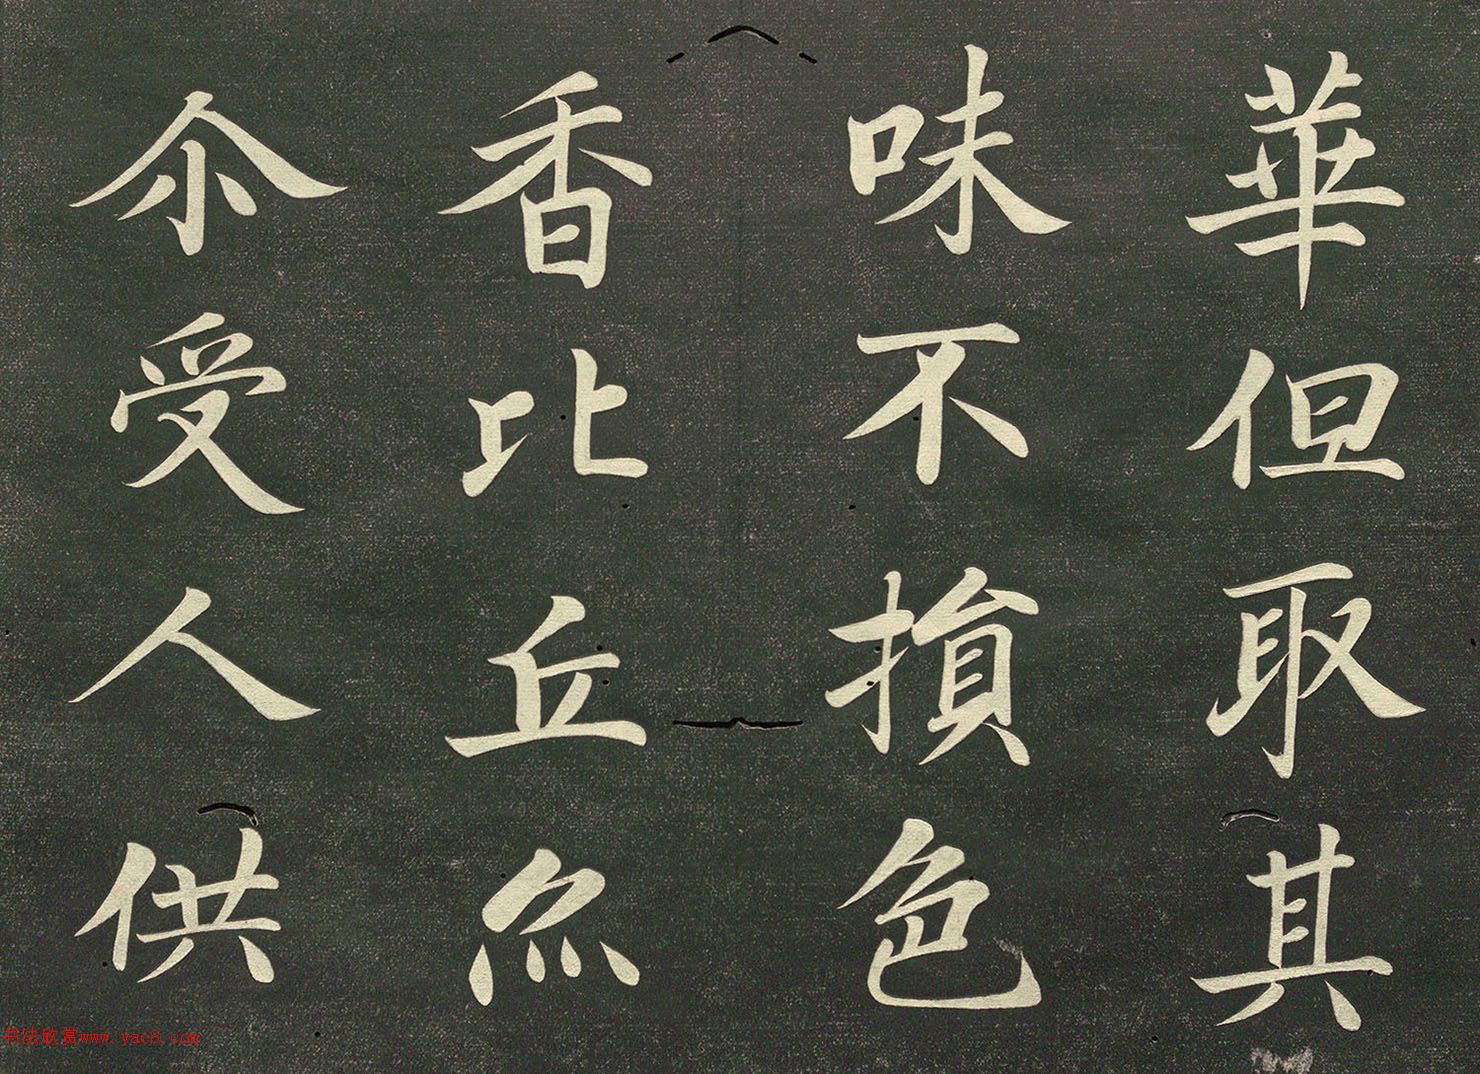 華但取其
味不損色
香比丘亦
尒受人供
书法欣赏www.yac8.com